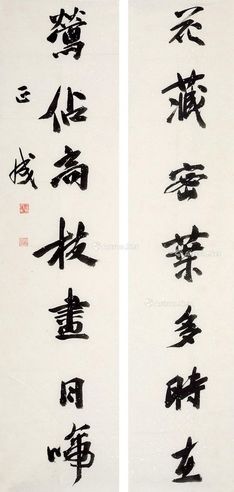 花藏密葉多時在
鶯佔高枝畫日啼
正成